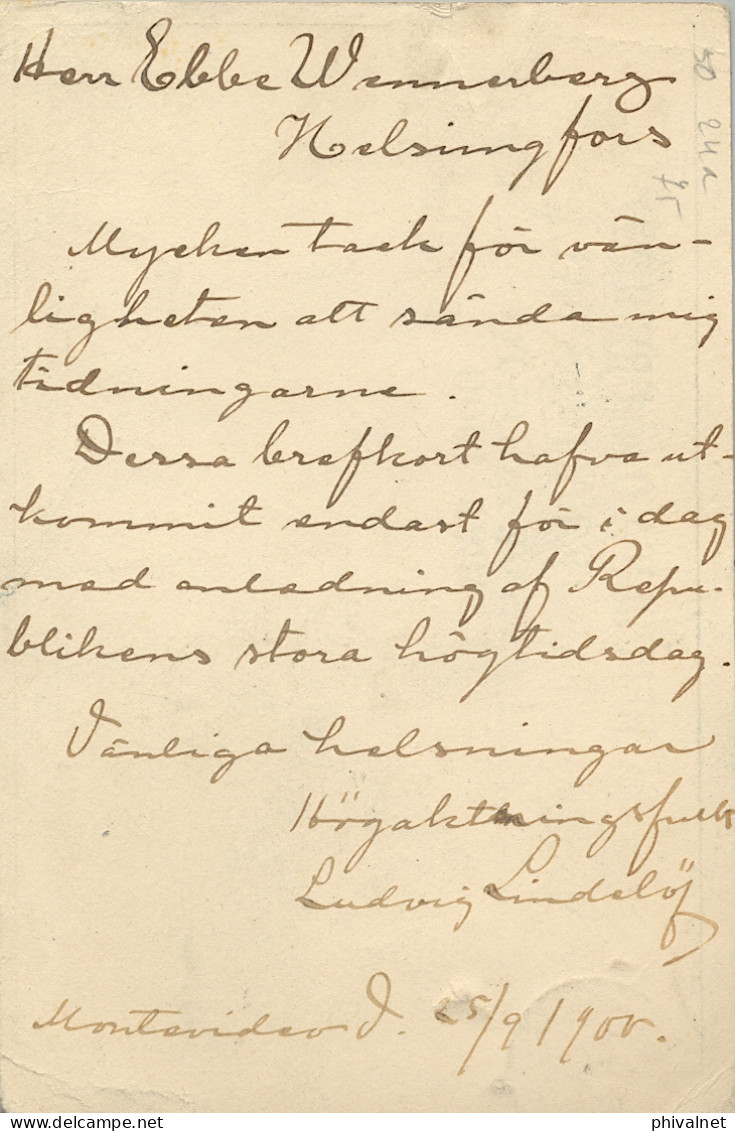 Herr Ebbe Wennerberg
Helsingfors
50 24a
25
Mycken tack för vän-
ligheten att sända mig
tidningarne.
Dessa brefkort hafva ut-
kommit endast för i dag
med anledning af Repu-
blikens stora högtidsdag.
Vänliga helsningar
Högaktningsfullt
Ludvig Lindelöf
Montevideo d. 25/9 1900.
delcampe.net
phivalnet